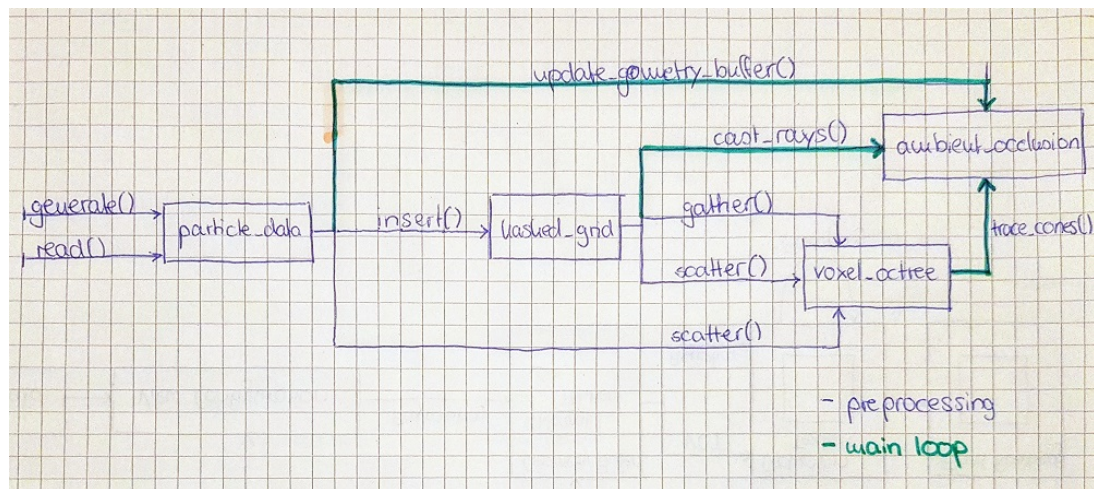 update_geometry_buffer()
cast_rays()
ambient_occlusion
generate()
particle_data
insert()
hashed_grid
gather()
trace_cones()
read()
scatter()
voxel_octree
scatter()
- preprocessing
- main loop